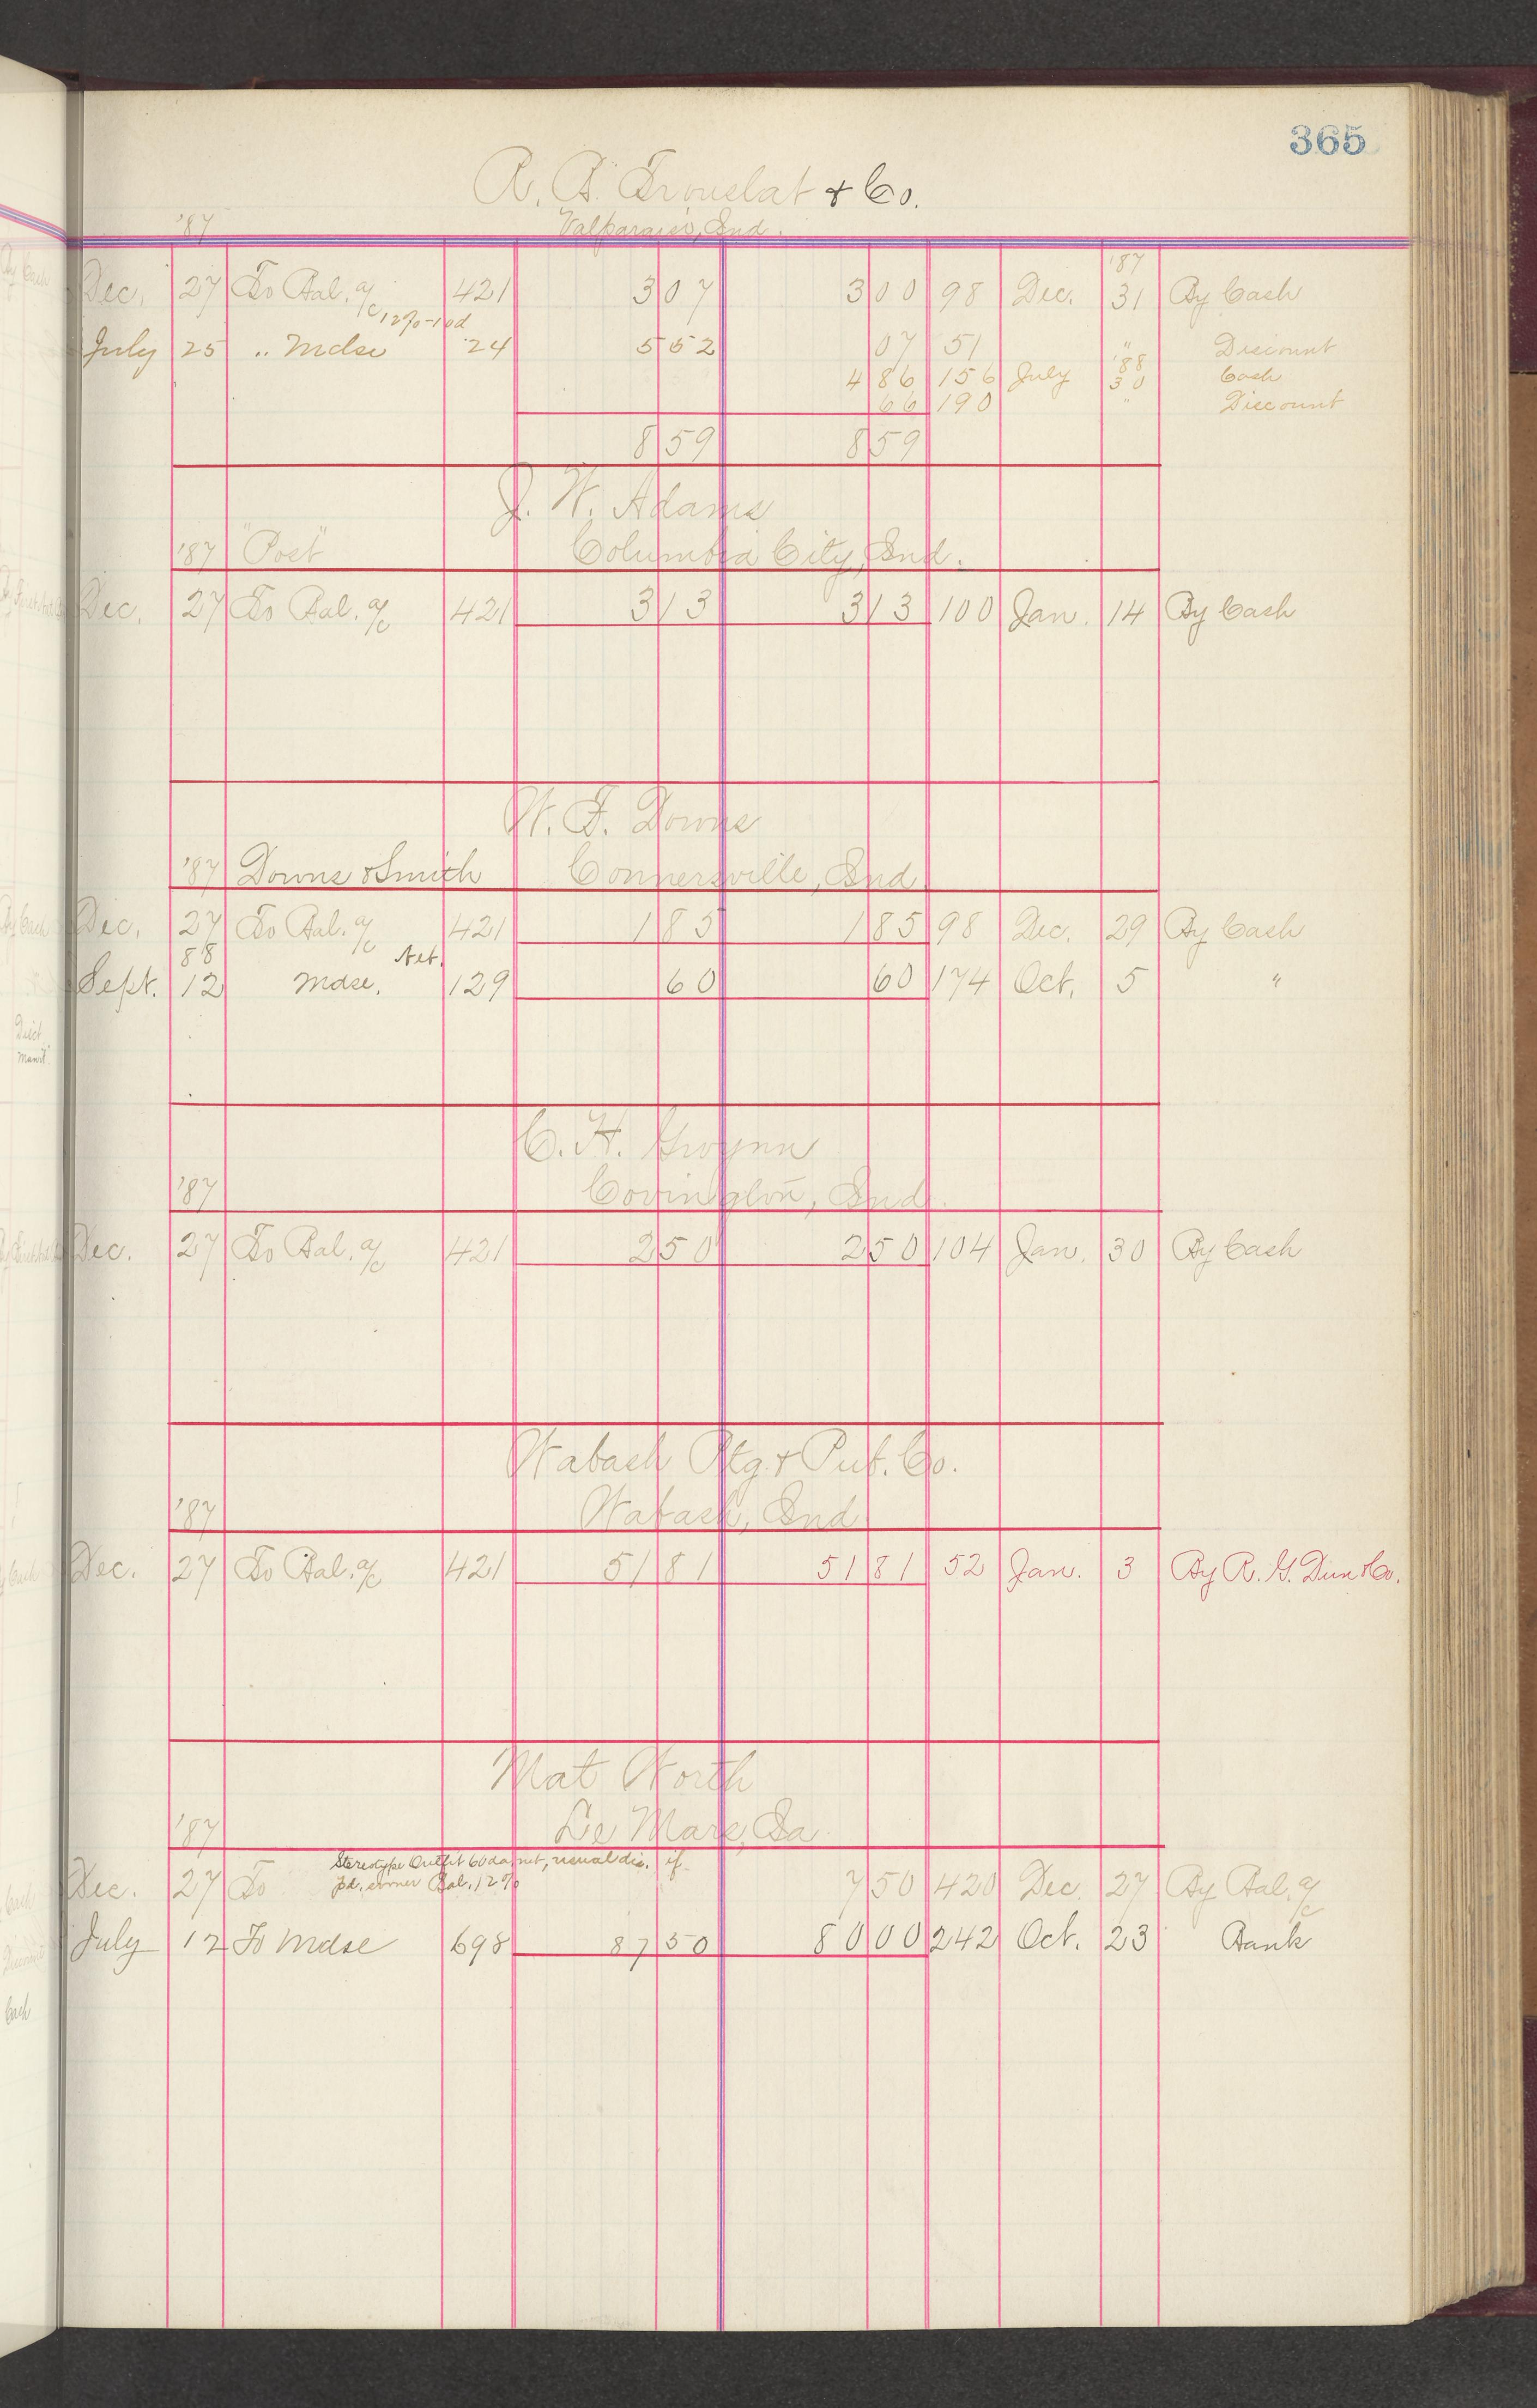 365
& Co.
'87 Valparaiso, Ind.
'87
Dec. 27 To Bal. a/c 421 3 07 3 00 98 Dec. 31 By Cash
12%-10d
July 25 " Mdse 24 5 52 07 51 " Discount
'88
4 86 156 July 30 Cash
66 190 " Discount
8 59 8 59
J. W. Adams
'87 "Post" Columbia City, Ind.
Dec. 27 To Bal. a/c 421 3 13 3 13 100 Jan. 14 By Cash
W. F. Downs
'87 Downs & Smith Connersville, Ind.
Dec. 27 To Bal. a/c 421 1 85 1 85 98 Dec. 29 By Cash
88 Net.
Sept. 12 Mdse. 129 60 60 174 Oct. 5 "
C. H. Gwynn
'87 Covington, Ind.
Dec. 27 To Bal. a/c 421 2 50 2 50 104 Jan. 30 By Cash
Wabash Ptg. & Pub. Co.
'87 Wabash, Ind
Dec. 27 To Bal. a/c 421 51 81 51 81 52 Jan. 3 By R. G. Dun & Co.
Mat Worth
'87 Le Mars, Ia.
Stereotype Outfit 60 da. net, usual dis. if
Dec. 27 To pd. sooner Bal. 12% 7 50 420 Dec. 27 By Bal. a/c
July 12 To Mdse 698 87 50 80 00 242 Oct. 23 Bank